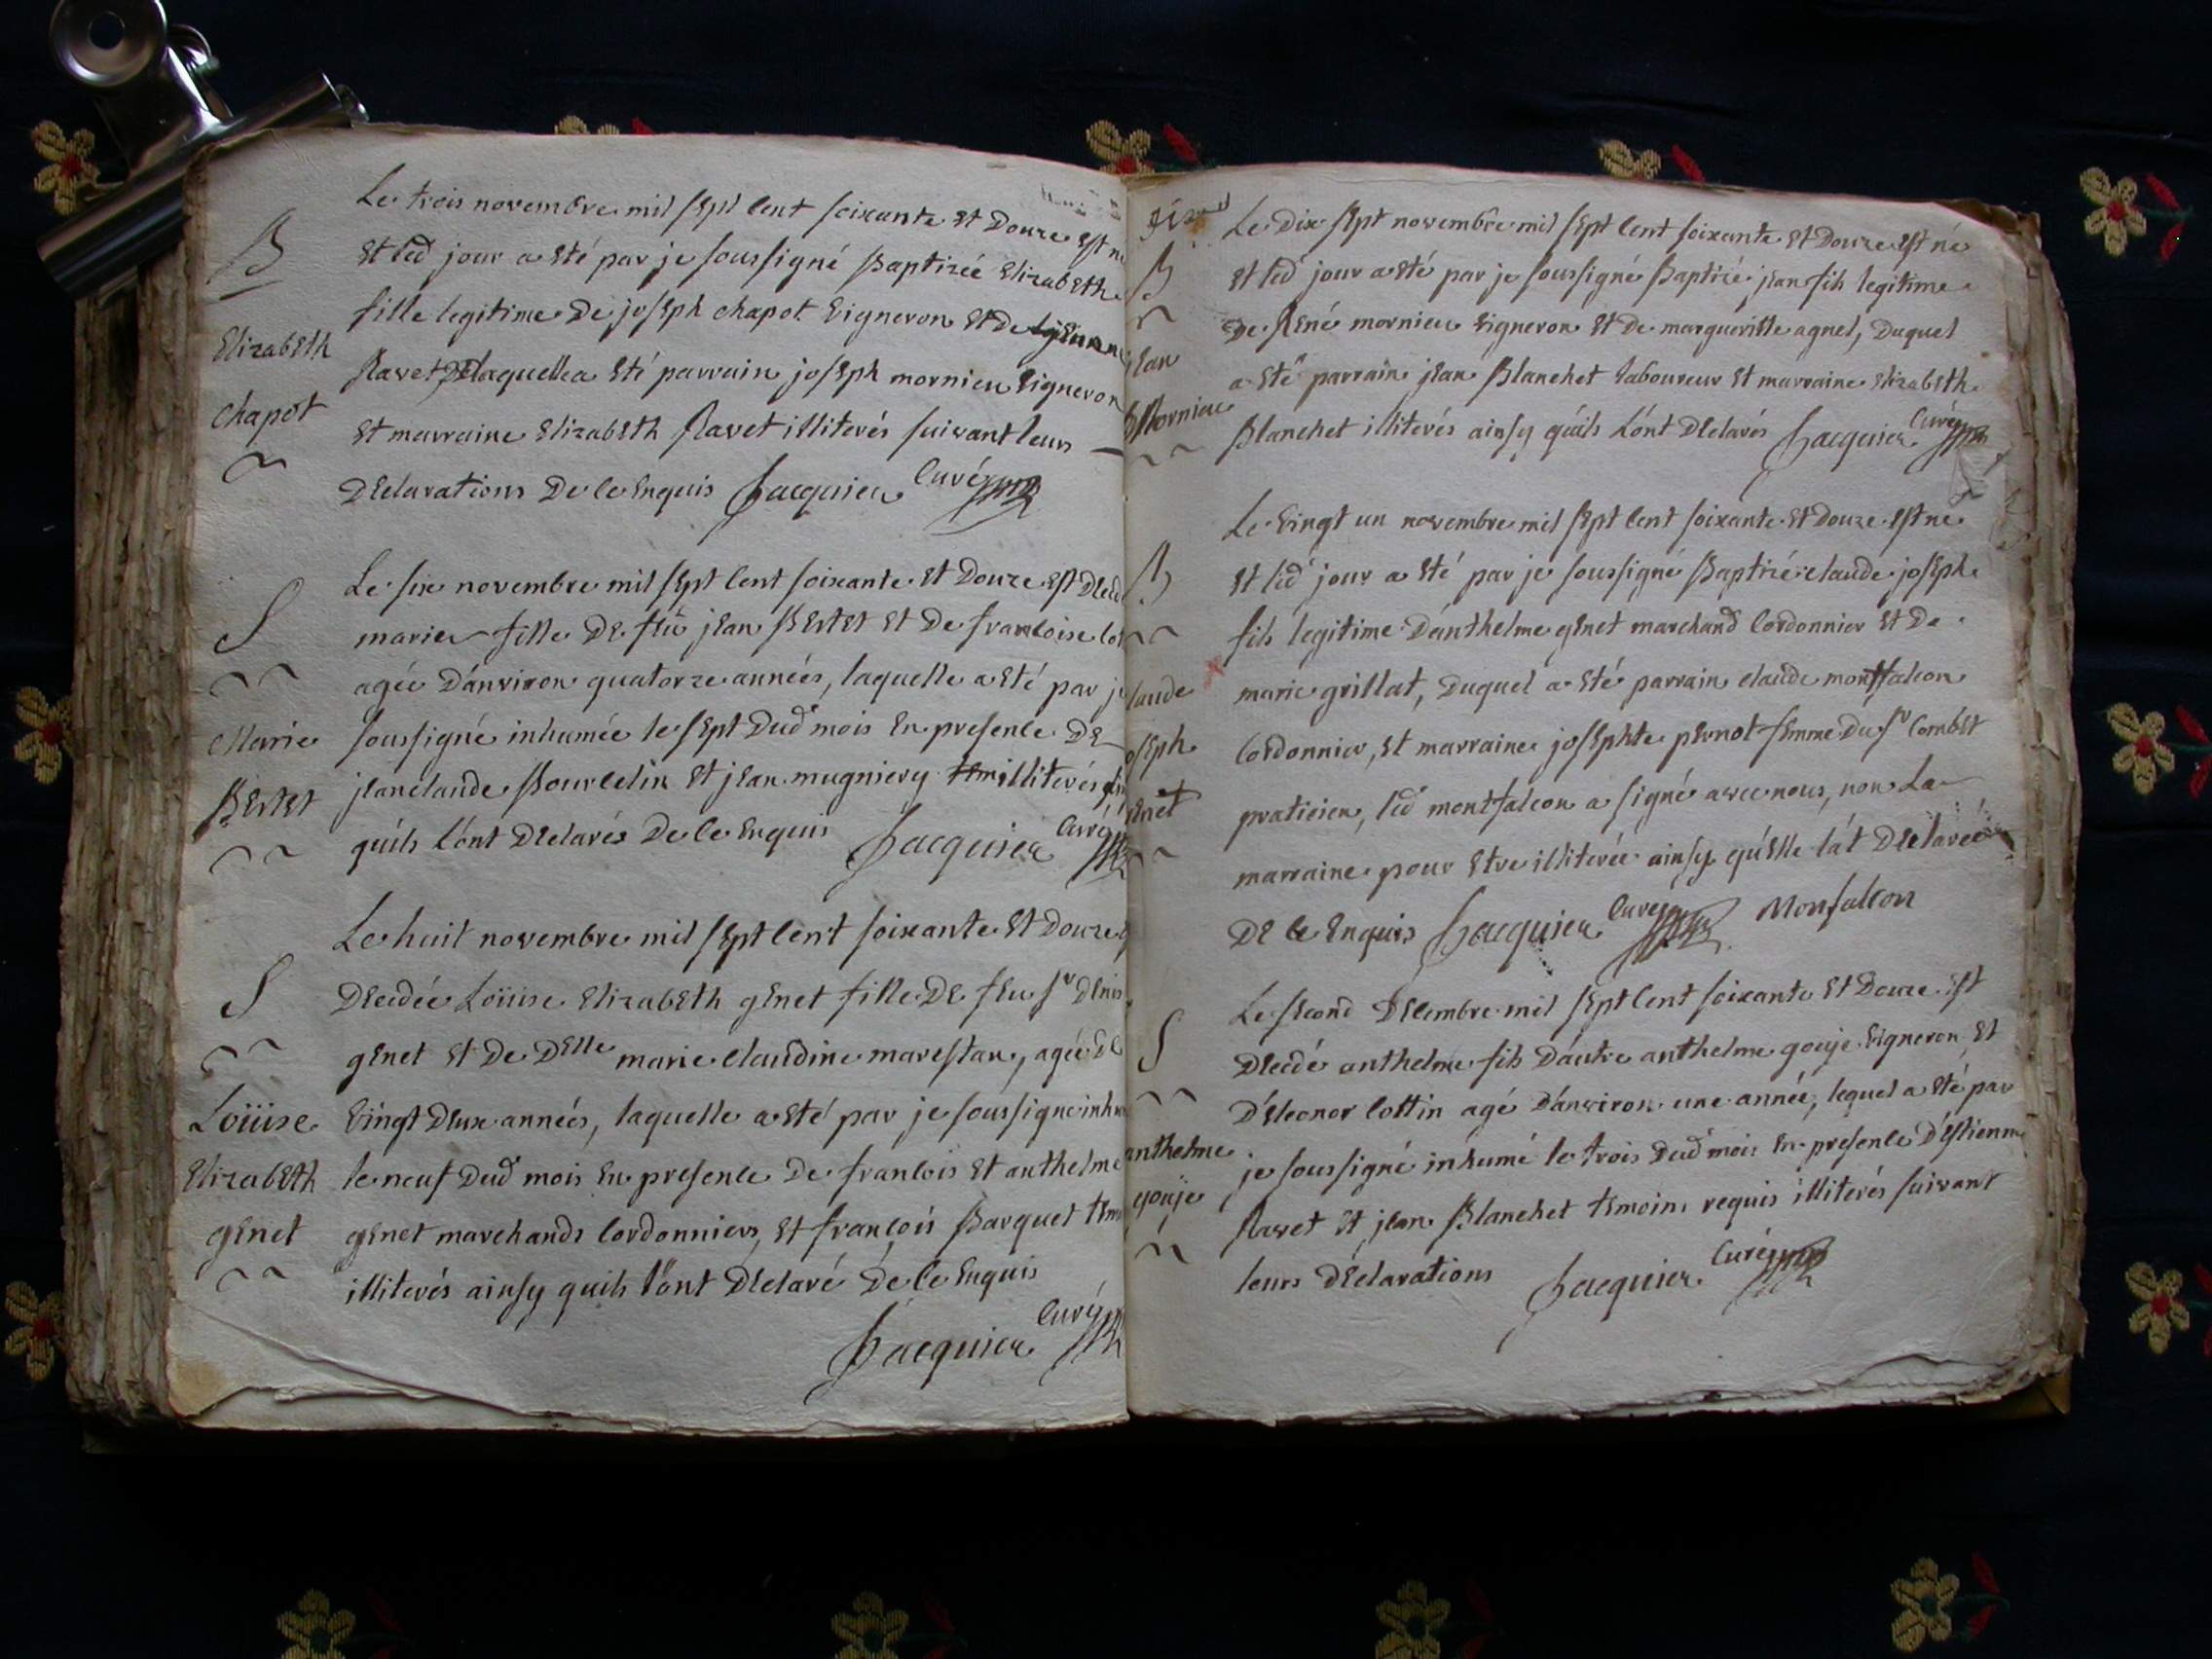 Le trois novembre mil sept cent soixante et Douze est
B
et led jour a eté par je soussigné Baptizée Elizabeth
fille legitime De joseph chapot Vigneron et De
Elizabeth
Ravet Delaquelle a eté parrain joseph mornieu Vigneron
chapot
et marraine Elizabeth Ravet illiterés suivant leurs
Déclarations De ce Enquis Jacquier Curé
Le six novembre mil sept cent soixante et Douze est
S
marie fille De feu jean Bertet et De francoise
agée D'anviron quatorze années, laquelle a eté par je
Marie
soussigné inhumée le sept Dud mois En presence De
Bertet
jeanclaude Bourcelin et jean mugniery illiterés
quils L'ont Declarés De ce Enquis Jacquier Curé
Le huit novembre mil sept cent soixante et Douze
S
Decedée Loüise Elizabeth genet fille De feu Sr Denis
genet et De Delle marie claudine marestan, agée De
Loüise
Vingt Deux années, laquelle a eté par je soussigné
Elizabeth
le neuf Dud mois En presence De francois et anthelme
genet
genet marchands Cordonniers, et francois Barquet
illiterés ainsy quils L'ont Declaré De ce Enquis
Jacquier Curé
Le Dix sept novembre mil sept cent soixante et Douze est né
B
et led jour a eté par je soussigné Baptizé jean fils legitime
jean
De René mornieu Vigneron et De margueritte agnel, Duquel
Mornieu
a eté parrain jean Blanchet Laboureur et marraine Elizabeth
Blanchet illiterés ainsy quils L'ont Declarés Jacquier Curé
Le Vingt un novembre mil sept cent soixante et Douze est né
B
et led jour a eté par je soussigné Baptizé claude joseph
fils legitime D'anthelme genet marchand Cordonnier et De
laude
marie grillat, Duquel a eté parrain claude montfalcon
oseph
Cordonnier, et marraine josephte pernot femme Du Sr Combet
enet
praticien, led montfalcon a signé avec nous, non La
marraine pour etre illiterée ainsy qu'elle l'at Declarée
De ce Enquis Jacquier Curé Monfalcon
Le second Decembre mil sept cent soixante et Douze est
S
Decedé anthelme fils D'autre anthelme gouje Vigneron et
D'Eleonor Cottin agé D'anviron une année, lequel a eté par
anthelme
je soussigné inhumé le trois Dud mois En presence D'Estienne
gouje
Ravet et jean Blanchet temoins requis illiterés suivant
leurs Déclarations Jacquier Curé